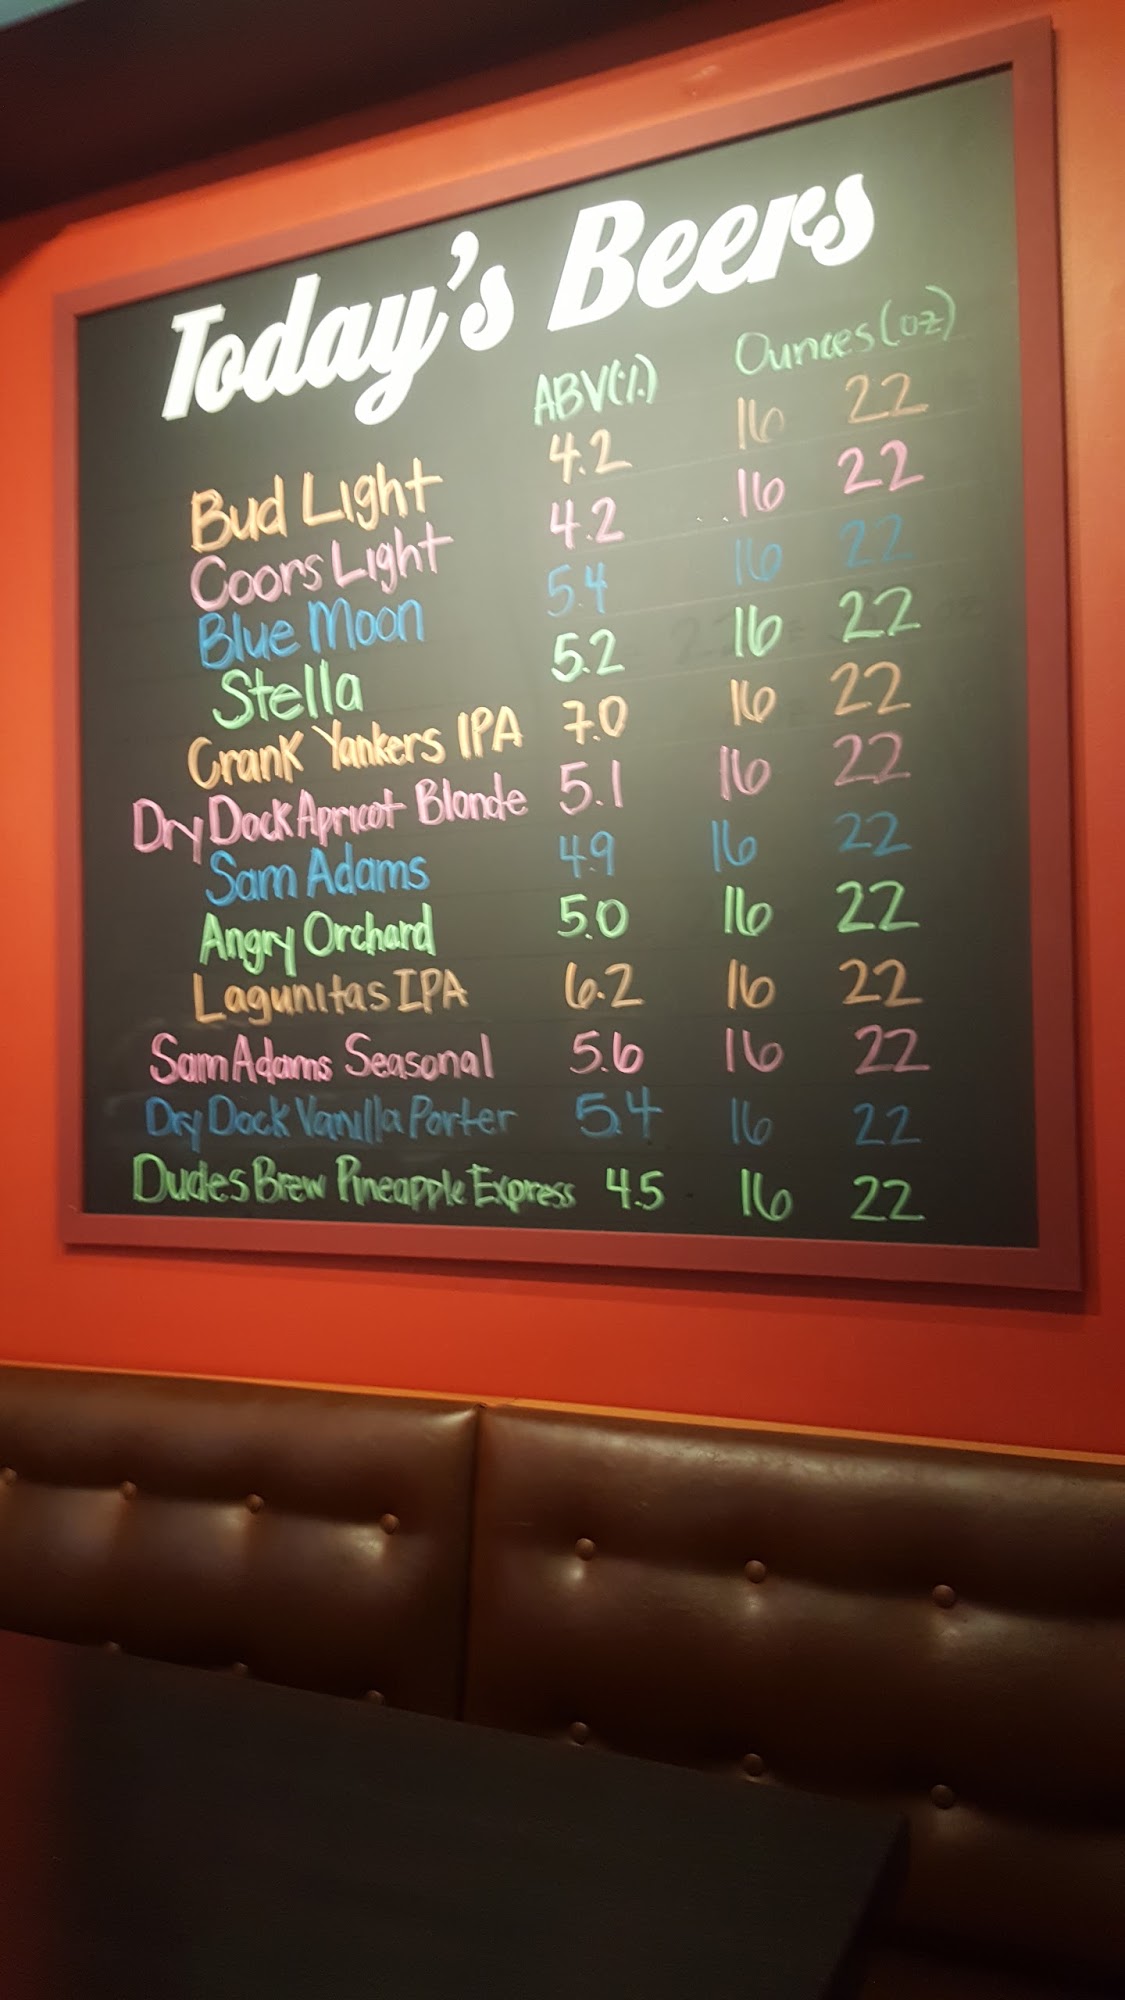 Today's Beers
ABV(%) Ounces(oz)
Bud Light 4.2 16 22
Coors Light 4.2 16 22
Blue Moon 5.4 16 22
Stella 5.2 16 22
Crank Yankers IPA 7.0 16 22
Dry Dock Apricot Blonde 5.1 16 22
Sam Adams 4.9 16 22
Angry Orchard 5.0 16 22
Lagunitas IPA 6.2 16 22
Sam Adams Seasonal 5.6 16 22
Dry Dock Vanilla Porter 5.4 16 22
Dudes Brew Pineapple Express 4.5 16 22